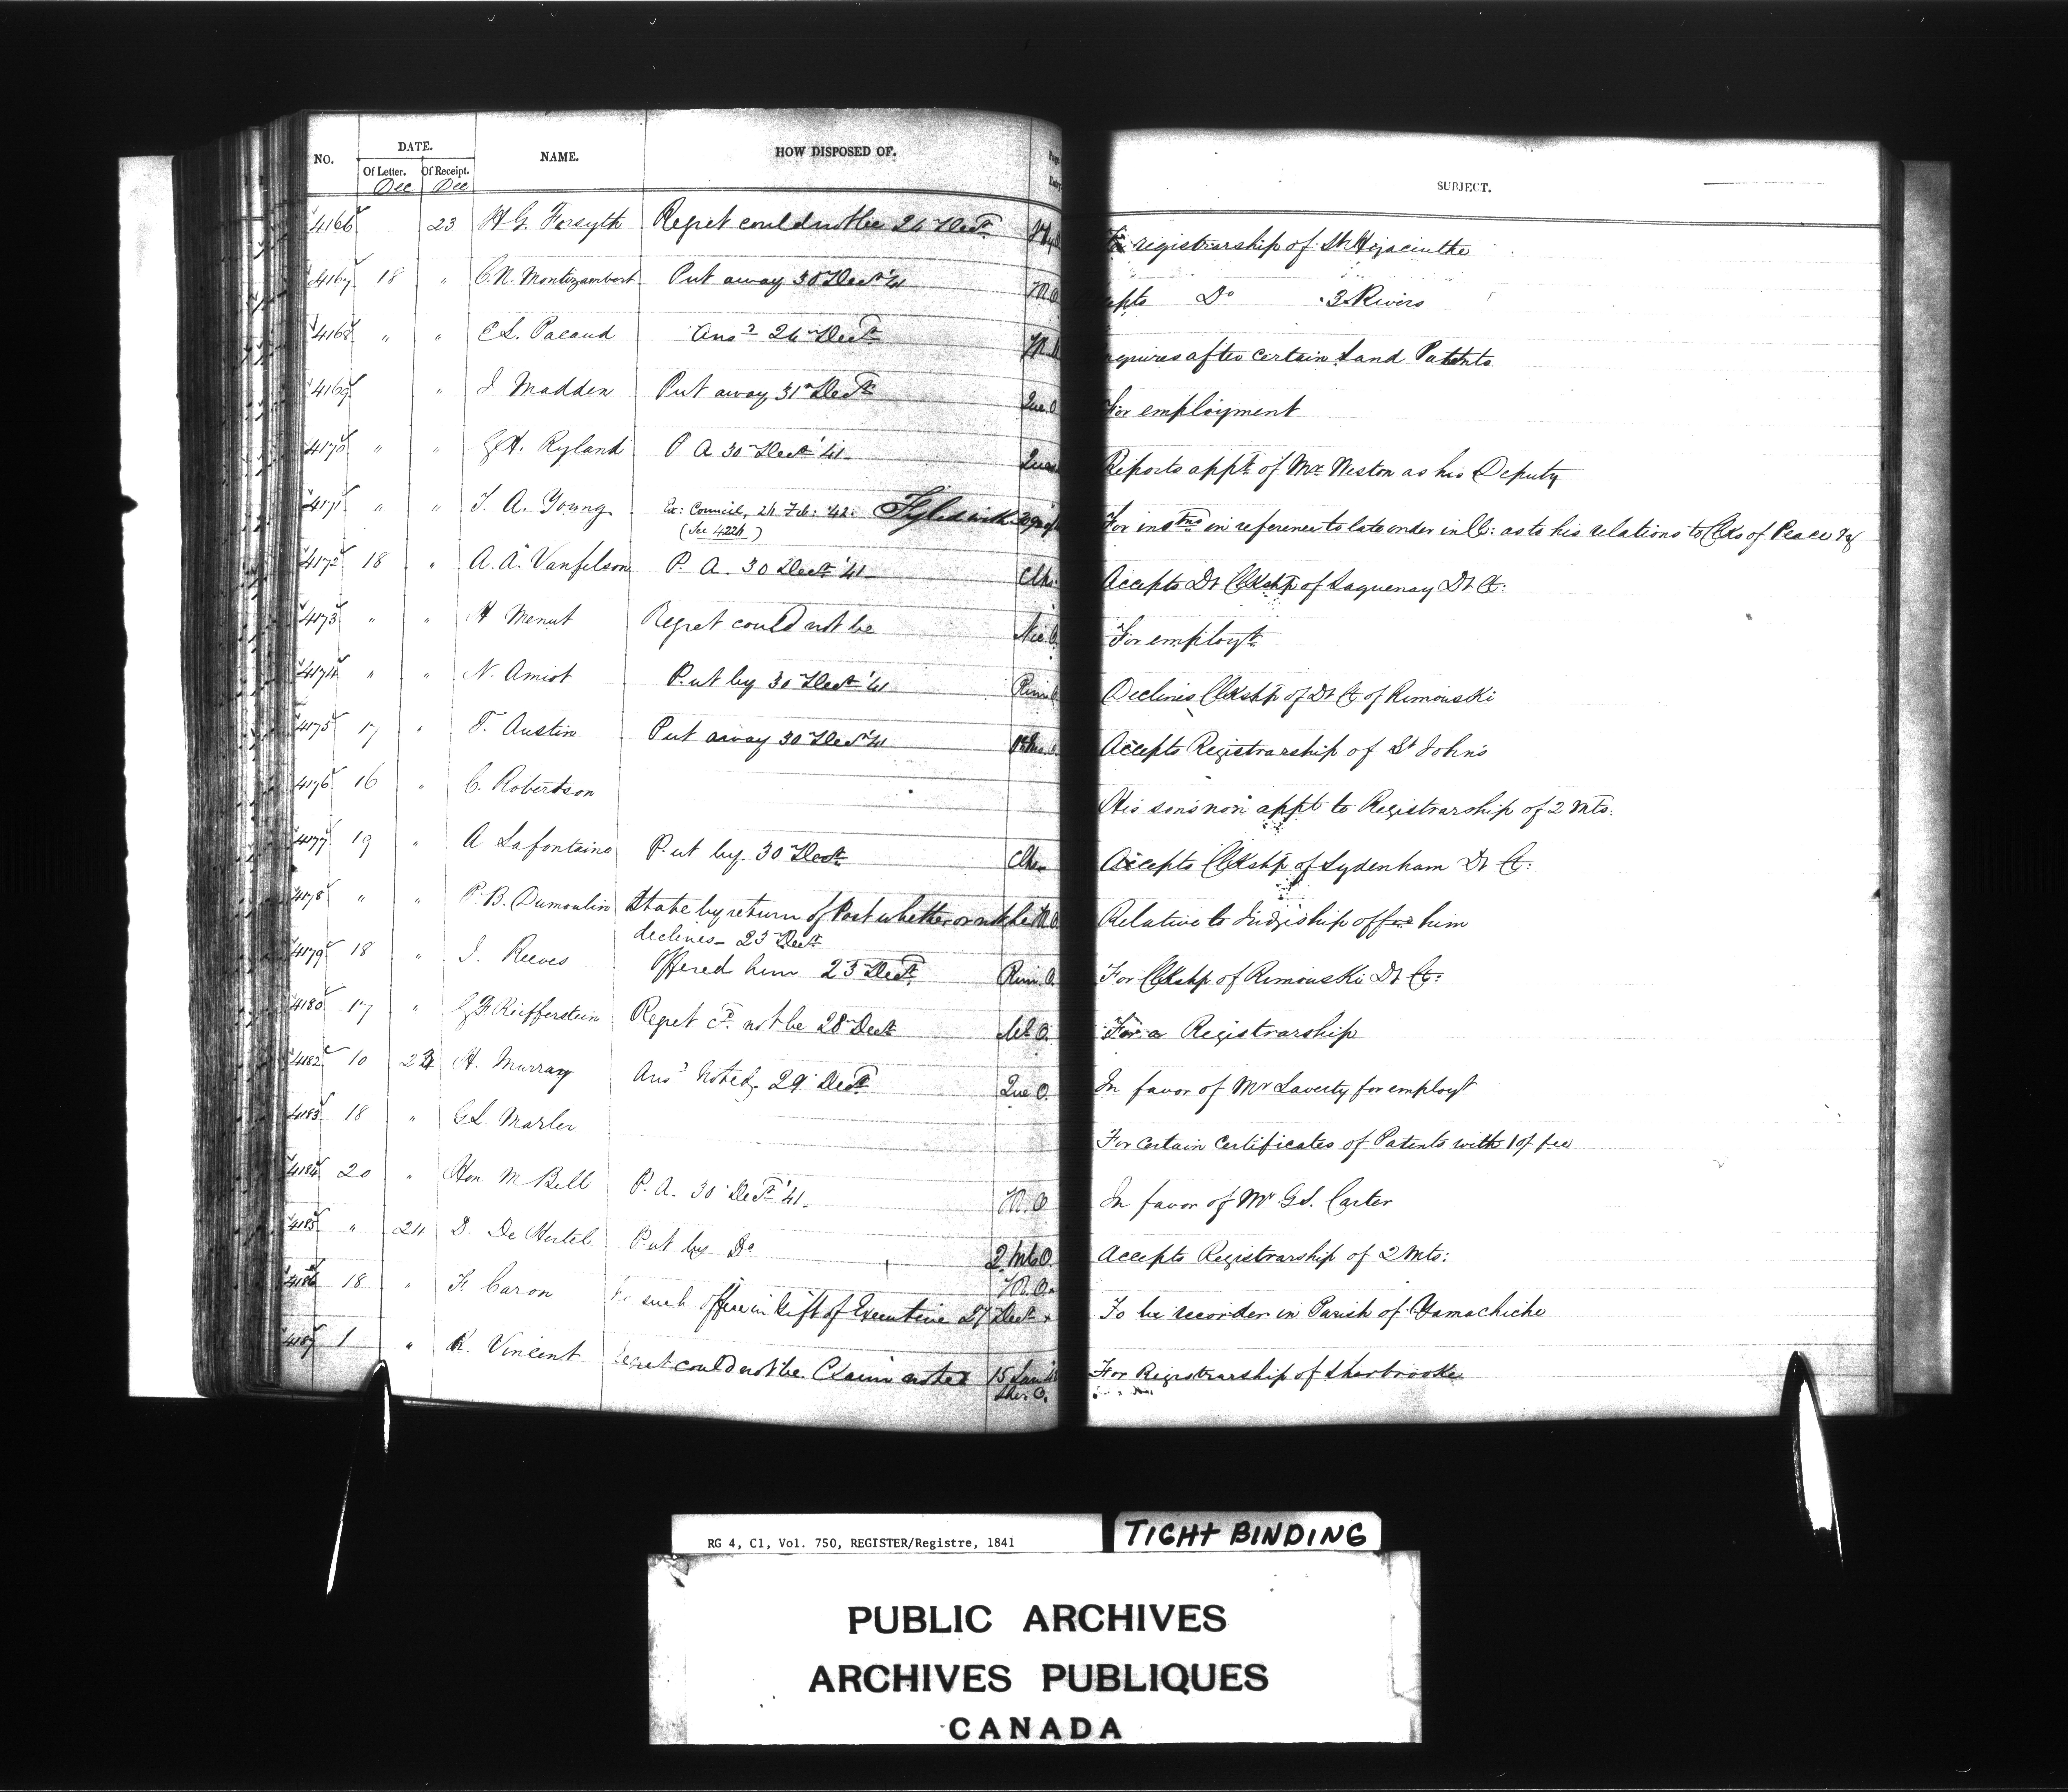 NO. DATE. NAME. HOW DISPOSED OF. SUBJECT.
Of Letter. Of Receipt.
Dec Dec
4166 23 H G. Forsyth Regret could not be 24 Decr. For registrarship of St Hyacinthe
4167 18 " C. N. Montizambert Put away 30 Decr '41 Do 3 Rivers
4168 " " C L. Pacaud Ansd 24 Decr. after certain Land Patents
4169 " J Madden Put away 31 Decr. For employment
4170 " " G H. Ryland P A 30 Decr '41 Reports appt. of Mr. Weston as his Deputy
4171 " " T. A. Young Ex: Council, 24 Feb: '42. Fyled with For in reference to late order in C: as to his relations to Clks of Peace &c
(See 4224)
4172 18 " A. A. Vanfelson P. A. 30 Decr '41 Accepts Dt Clkshp of Saguenay Dt Ct:
4173 " " H Menut Regret could not be Nic. O. For employt.
4174 " " N. Amiot Put by 30 Decr '41 Declines Clkshp of Dt Ct of Rimouski
4175 17 " T. Austin Put away 30 Decr '41 Accepts Registrarship of St Johns
4176 16 " C. Robertson His son's non appt to Registrarship of 2 Mts:
4177 19 " A Lafontaine Put by 30 Decr. Accepts Clkshp of Sydenham Dt Ct:
4178 " " P. B. Dumoulin State by return of Post whether or not he Relative to Judgeship offered him
declines - 23 Decr.
4179 18 " J. Reeves Offered him 23 Decr. Rim. O. For Clkshp of Rimouski Dt Ct:
4180 17 " G H Reiffenstein Regret cd. not be 28 Decr. For a Registrarship
4182 10 23 H. Murray Ansd Noted 29 Decr. Que O. In favor of Mr Laverty for employt
4183 18 " G L. Marler For certain certificates of Patents with 10/ fee
4184 20 " Hon M Bell P. A. 30 Decr '41. In favor of Mr G S. Carter
4185 " 24 D. De Hertel Put by Do 2 Mts O. Accepts Registrarship of 2 Mts:
4186 18 " F. Caron No such office in Gift of Executive 27 Decr. To be recorder in Parish of Yamachiche
4187 1 " R. Vincent Regret could not be. Claim noted 15 Jan For Registrarship of Sherbrooke
Sher. O.
RG 4, C1, Vol. 750, REGISTER/Registre, 1841
TIGHT BINDING
PUBLIC ARCHIVES
ARCHIVES PUBLIQUES
CANADA